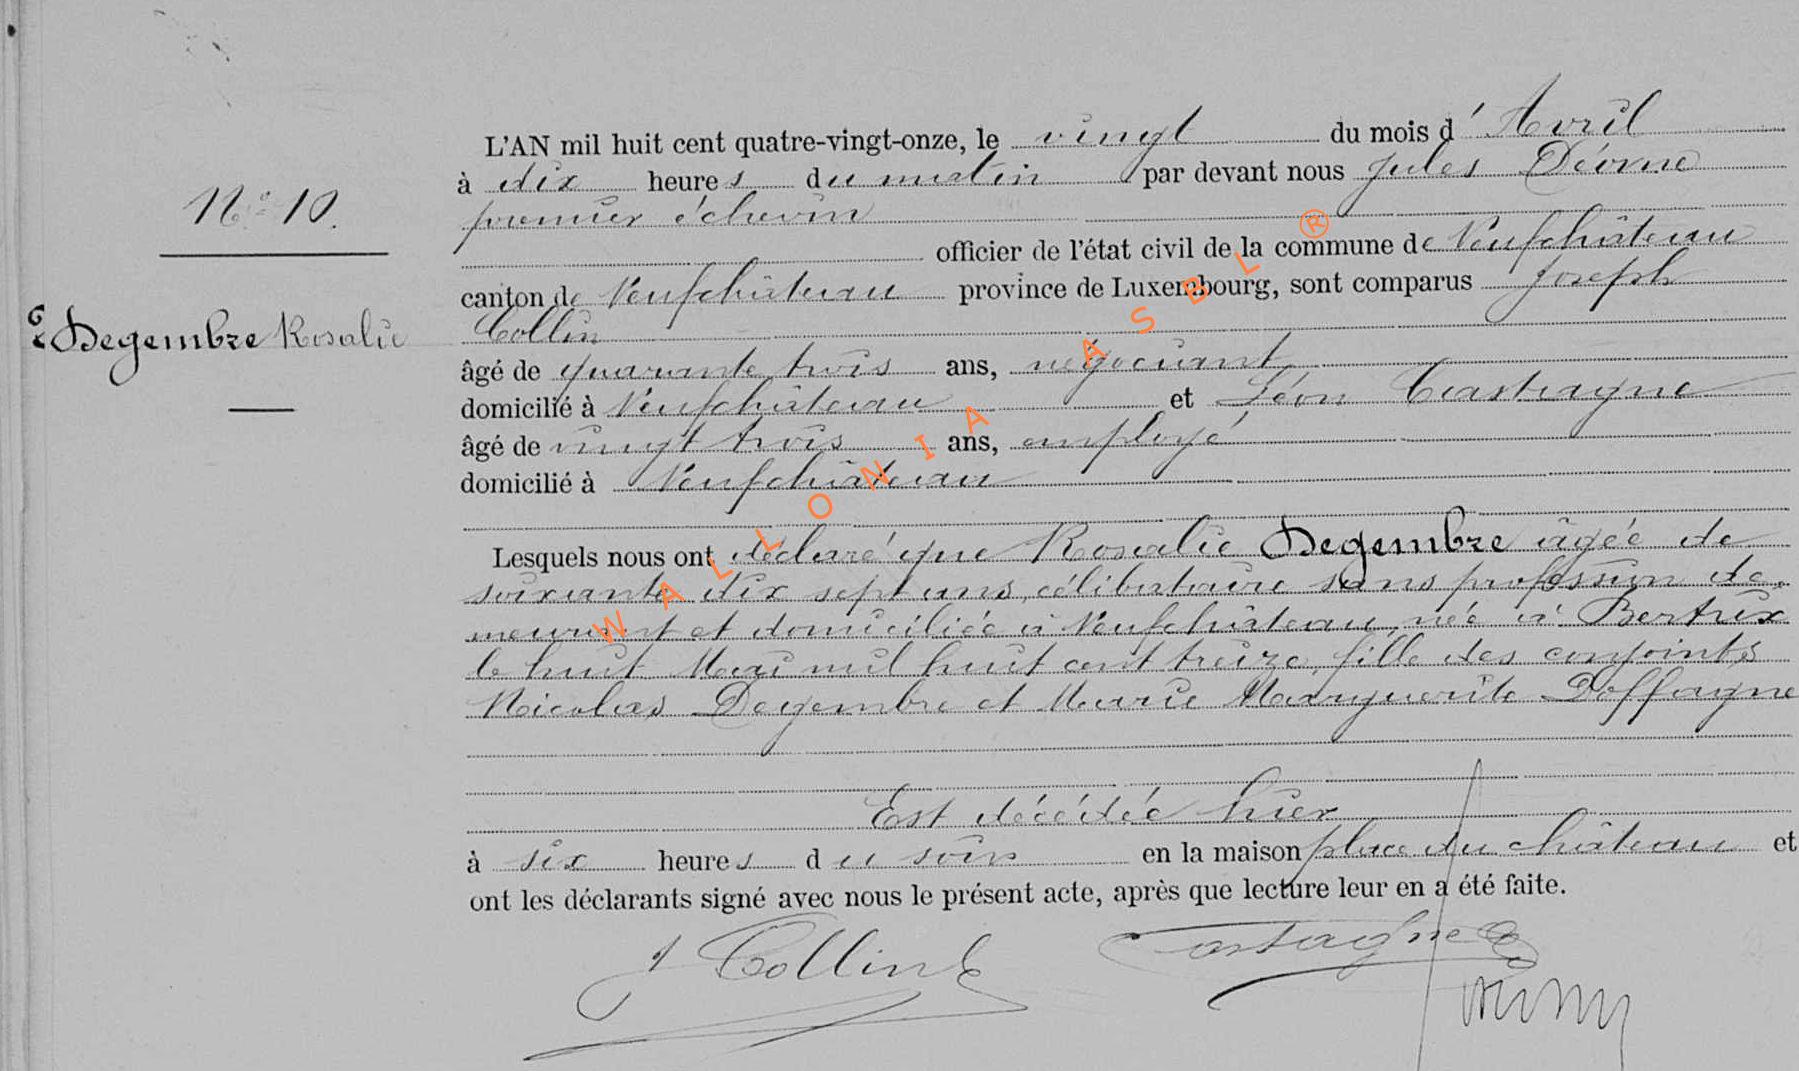 L'AN mil huit cent quatre-vingt-onze, le vingt du mois d'Avril
à dix heures du matin par devant nous Jules
premier échevin
officier de l'état civil de la commune de Neufchâteau
canton de Neufchâteau province de Luxembourg, sont comparus Joseph
Collin
âgé de quarante trois ans, négociant
domicilié à Neufchâteau et Léon Castagne
âgé de vingt trois ans, employé
domicilié à Neufchâteau
Lesquels nous ont déclaré que Rosalie Degembre âgée de
soixante dix sept ans, célibataire sans profession de-
meurant et domiciliée à Neufchâteau, née à Bertrix
le huit Mai mil huit cent treize, fille des conjoints
Nicolas Degembre et Marie Marguerite Doffagne
Est décédée hier
à six heures du soir en la maison place du château et
ont les déclarants signé avec nous le présent acte, après que lecture leur en a été faite.
J Collin
Castagne
N° 10.
Degembre Rosalie
WALLONIA ASBL ®